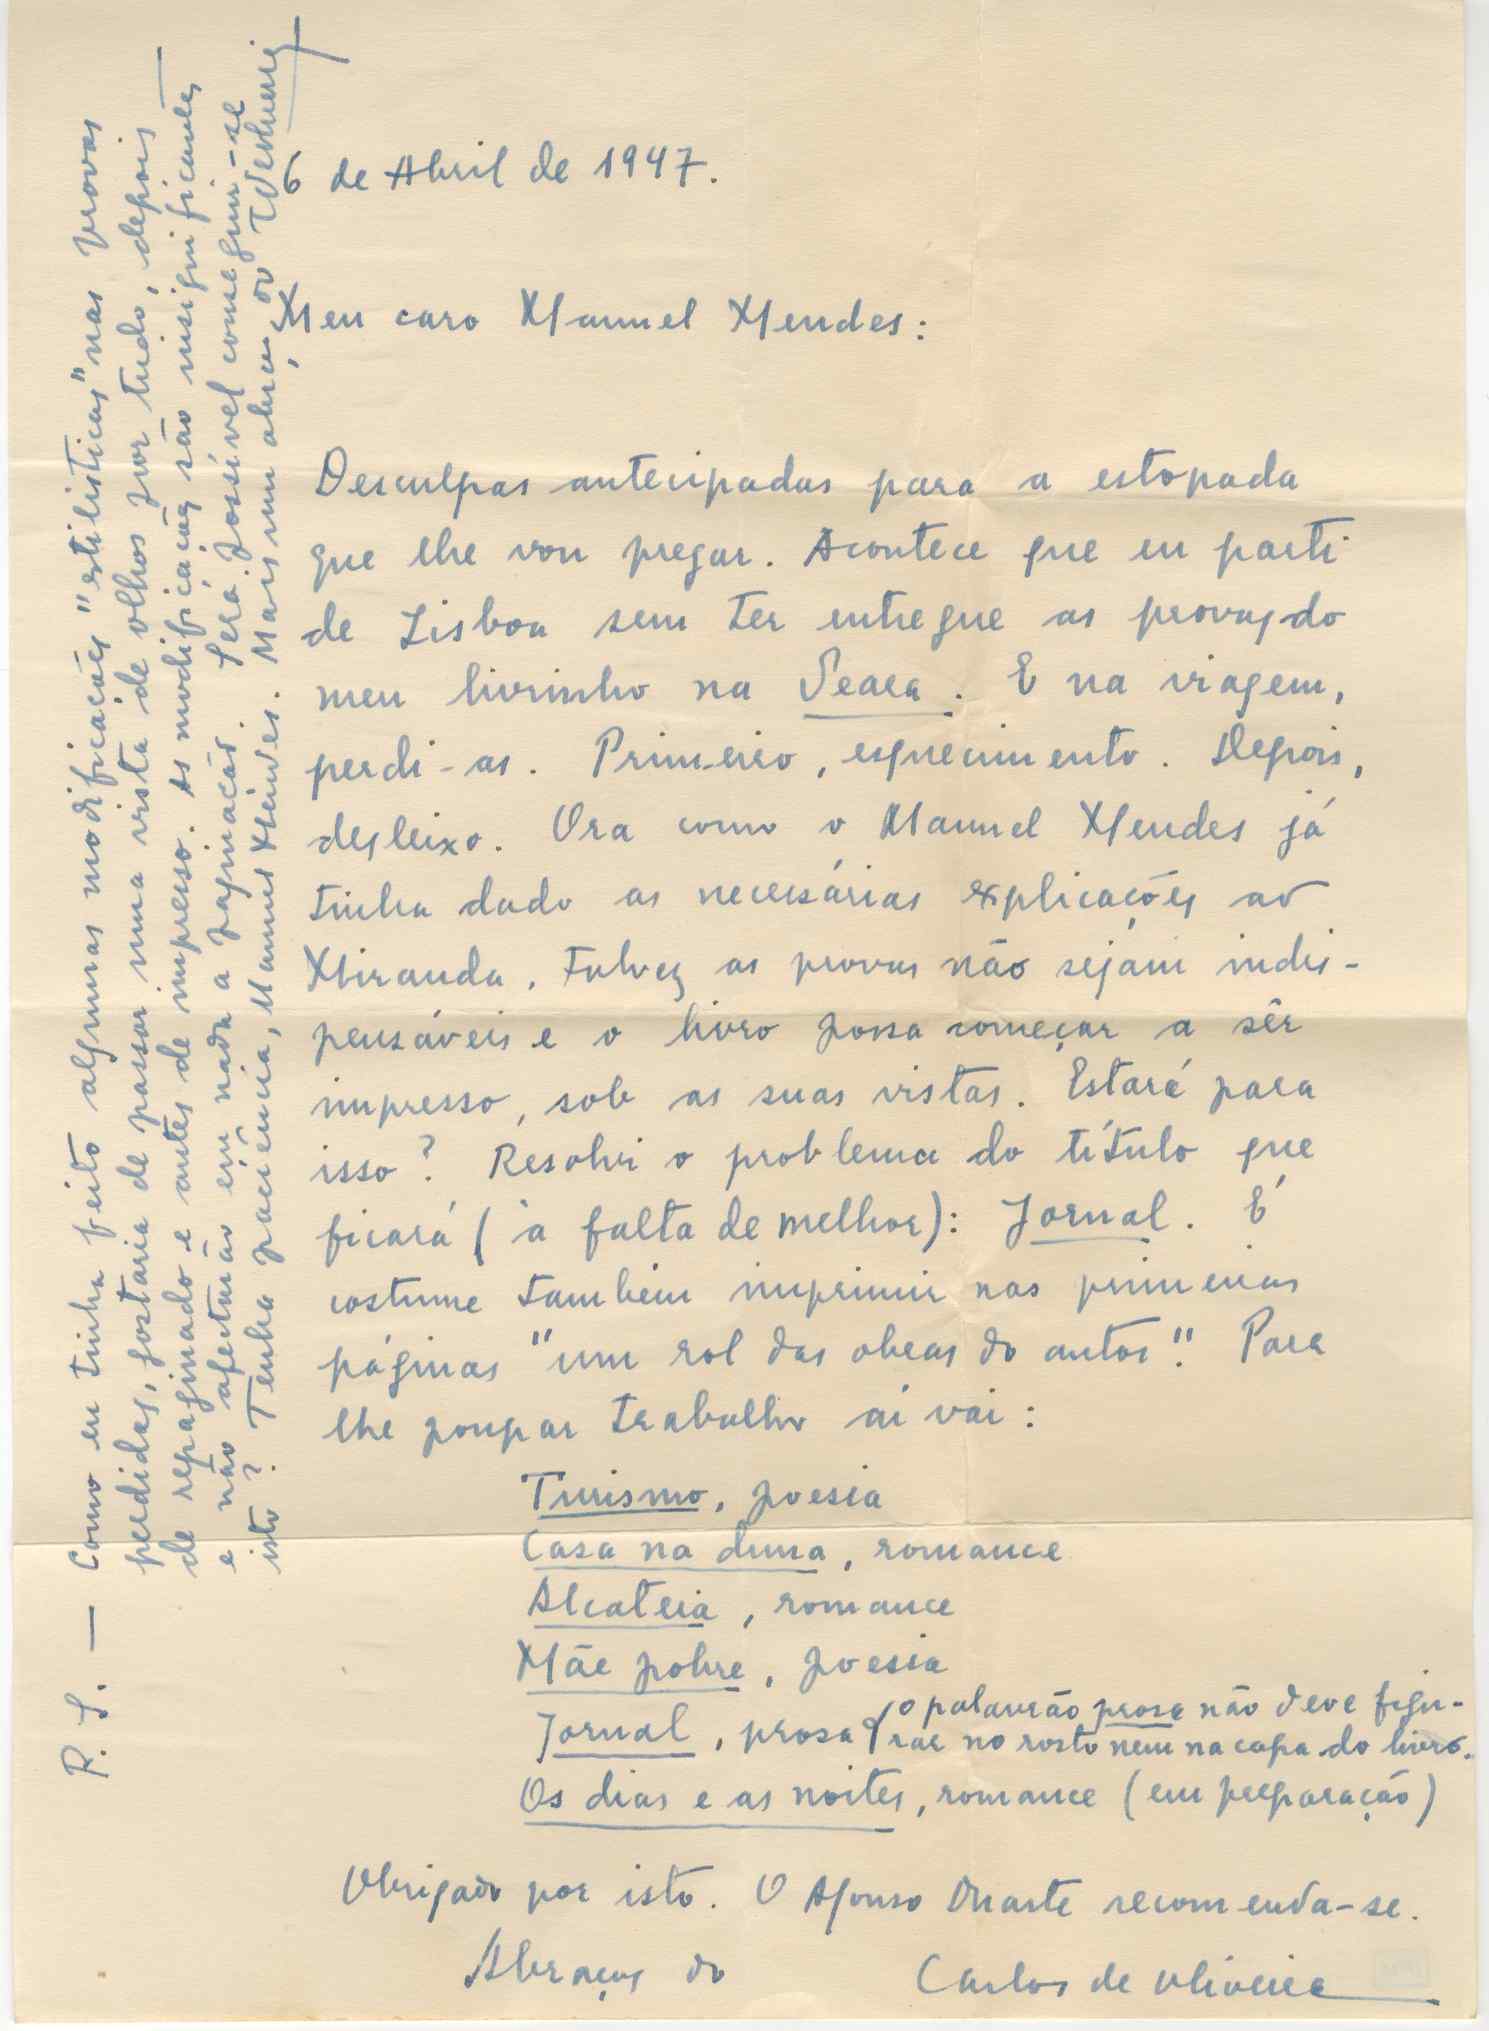 6 de Abril de 1947.
Meu caro Manuel Mendes:
Desculpas antecipadas para a estopada
que lhe vou pregar. Acontece que eu parti
de Lisboa sem ter entregue as provas do
meu livrinho na Seara. E na viagem,
perdi-as. Primeiro, esquecimento. Depois,
desleixo. Ora como o Manuel Mendes já
tinha dado as necessárias explicações ao
Miranda, talvez as provas não sejam indis-
pensáveis e o livro possa começar a sêr
impresso, sob as suas vistas. Estará para
isso? Resolvi o problema do título que
ficará (à falta de melhor): Jornal. É
costume também imprimir nas primeiras
páginas "um rol das obras do autor". Para
lhe poupar trabalho aí vai:
Turismo, poesia
Casa na duna, romance
Alcateia, romance
Mãe pobre, poesia
Jornal, prosa (o palavrão prosa não deve figu-
rar no rosto nem na capa do livro.
Os dias e as noites, romance (em preparação)
Obrigado por isto. O Afonso Duarte recomenda-se.
Abraços do Carlos de Oliveira
P.S. — Como eu tinha feito algumas modificações "estilísticas" nas provas
perdidas, gostaria de passar uma vista de olhos por tudo, depois
de repaginado e antes de impresso. As modificações são insignificantes
e não afectarão em nada a paginação. Será possível conseguir-se
isto? Tenha paciência, Manuel Mendes. Mais um abraço do